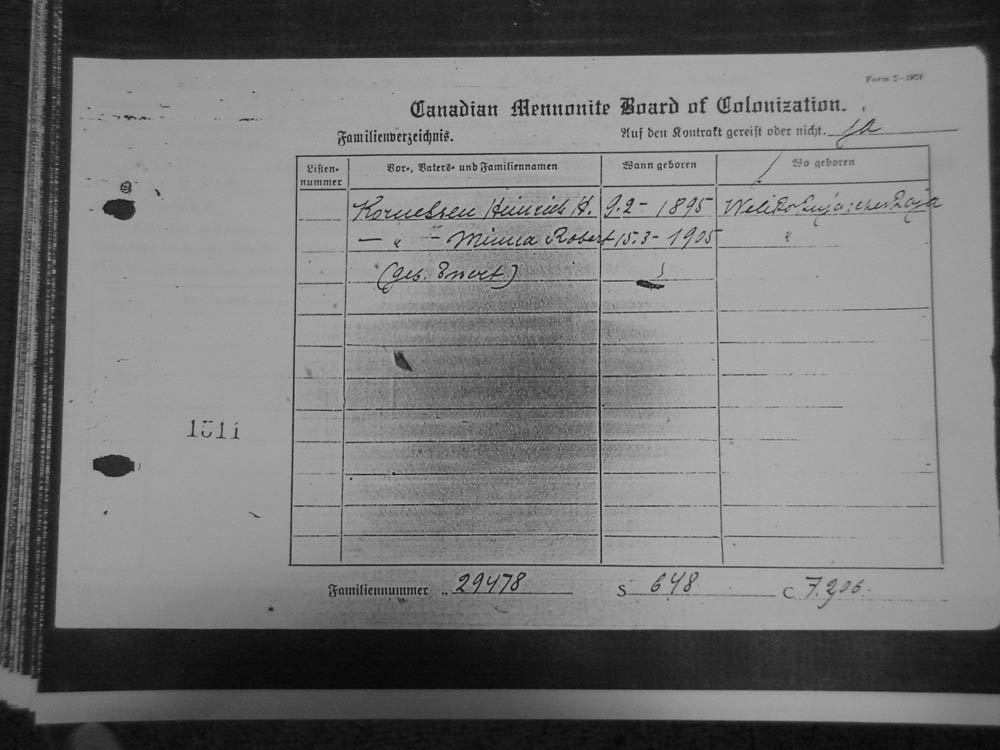 Form 2—1924
Canadian Mennonite Board of Colonization.
Familienverzeichnis.
Auf den Kontrakt gereist oder nicht. ja
Listen-nummer Vor-, Vaters- und Familiennamen Wann geboren Wo geboren
Kornelsen Heinrich H. 9.2- 1895
— " — Minna Robert 15.3- 1905 "
(geb. Ewert)
1511
Familiennummer 29478 S 648 C 7.206.